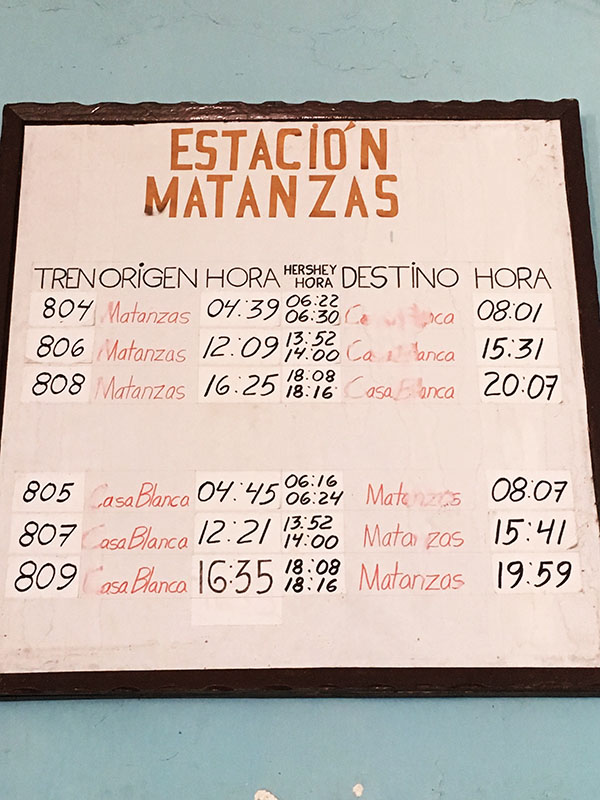 ESTACIÓN
MATANZAS
TREN ORIGEN HORA HERSHEY HORA DESTINO HORA
804 Matanzas 04:39 06:22 06:30 Casa Blanca 08:01
806 Matanzas 12:09 13:52 14:00 Casa Blanca 15:31
808 Matanzas 16:25 18:08 18:16 Casa Blanca 20:07
805 Casa Blanca 04:45 06:16 06:24 Matanzas 08:07
807 Casa Blanca 12:21 13:52 14:00 Matanzas 15:41
809 Casa Blanca 16:35 18:08 18:16 Matanzas 19:59